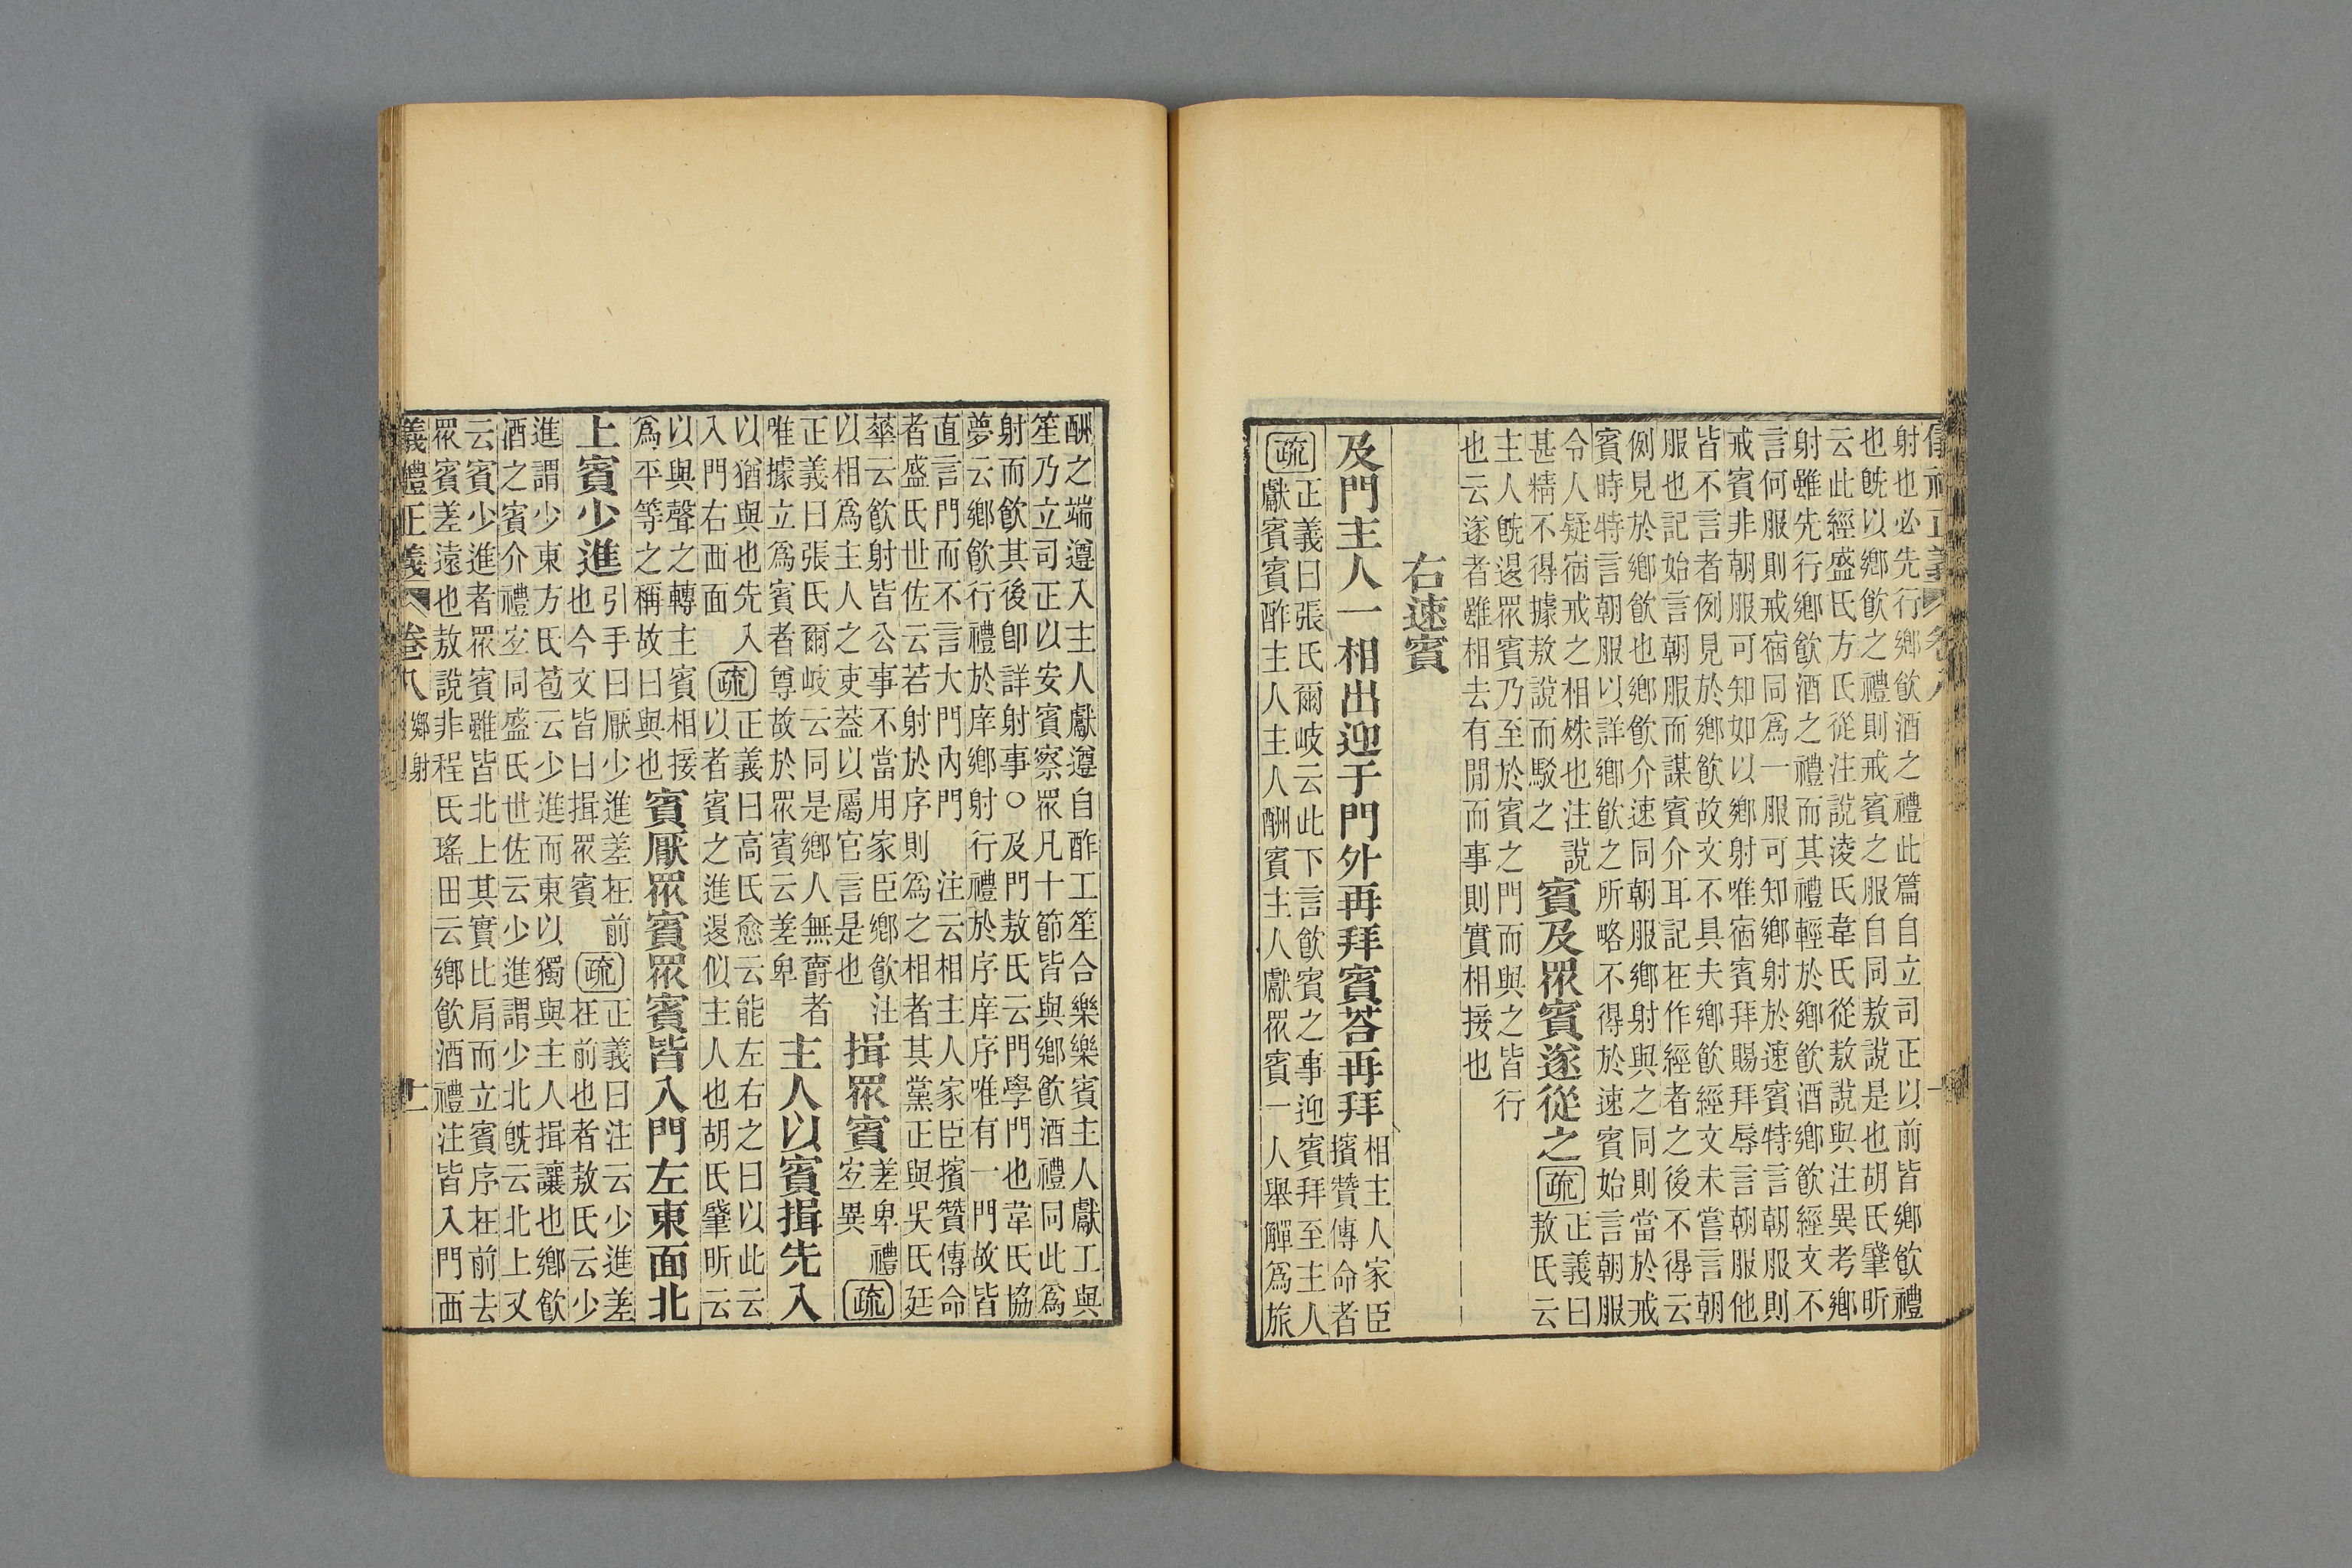 儀禮正義 卷八
射也必先行鄉飮酒之禮此篇自立司正以前皆鄉飮禮
也旣以鄉飮之禮則戒賓之服自同敖說是也胡氏肇昕
云此經盛氏方氏從注說淩氏韋氏從敖說與注異考鄉
射雖先行鄉飮酒之禮而其禮輕於鄉飮酒鄉飮經文不
言何服則戒宿同爲一服可知鄉射於速賓特言朝服則
戒賓非朝服可知如以鄉射唯宿賓拜賜拜辱言朝服他
皆不言者例見於鄉飮故文不具夫鄉飮經文未嘗言朝
服也記始言朝服而謀賓介耳記在作經者之後不得云
例見於鄉飮也鄉飮介速同朝服鄉射與之同則當於戒
賓時特言朝服以詳鄉飮之所略不得於速賓始言朝服
令人疑宿戒之相殊也注說
甚精不得據敖說而駁之
賓及眾賓遂從之
疏
正義曰
敖氏云
主人旣退眾賓乃至於賓之門而與之皆行
也云遂者雖相去有閒而事則實相接也
右速賓
及門主人一相出迎于門外再拜賓荅再拜
相主人家臣
擯贊傳命者
疏
正義曰張氏爾岐云此下言飮賓之事迎賓拜至主人
獻賓賓酢主人主人酬賓主人獻眾賓一人舉觶爲旅
酬之端遵入主人獻遵自酢工笙合樂樂賓主人獻工與
笙乃立司正以安賓察眾凡十節皆與鄉飮酒禮同此爲
射而飮其後卽詳射事○及門敖氏云門學門也韋氏協
夢云鄉飮行禮於庠鄉射行禮於序庠序唯有一門故皆
直言門而不言大門內門
注云相主人家臣擯贊傳命
者盛氏世佐云若射於序則爲之相者其黨正與吳氏廷
華云飮射皆公事不當用家臣鄉飮注
以相爲主人之吏蓋以屬官言是也
揖眾賓
差卑禮
宐異
疏
正義曰張氏爾岐云同是鄉人無爵者
唯據立爲賓者尊故於眾賓云差卑
主人以賓揖先入
以猶與也先入
入門右西面
疏
正義曰高氏愈云能左右之曰以此云
以者賓之進退似主人也胡氏肇昕云
以與聲之轉主賓相接
爲平等之稱故曰與也
賓厭眾賓眾賓皆入門左東面北
上賓少進
引手曰厭少進差在前
也今文皆曰揖眾賓
疏
正義曰注云少進差
在前也者敖氏云少
進謂少東方氏苞云少進而東以獨與主人揖讓也鄉飮
酒之賓介禮宐同盛氏世佐云少進謂少北旣云北上又
云賓少進者眾賓雖皆北上其實比肩而立賓序在前去
眾賓差遠也敖說非程氏瑤田云鄉飮酒禮注皆入門西
義禮正義 卷八 鄉射 十一